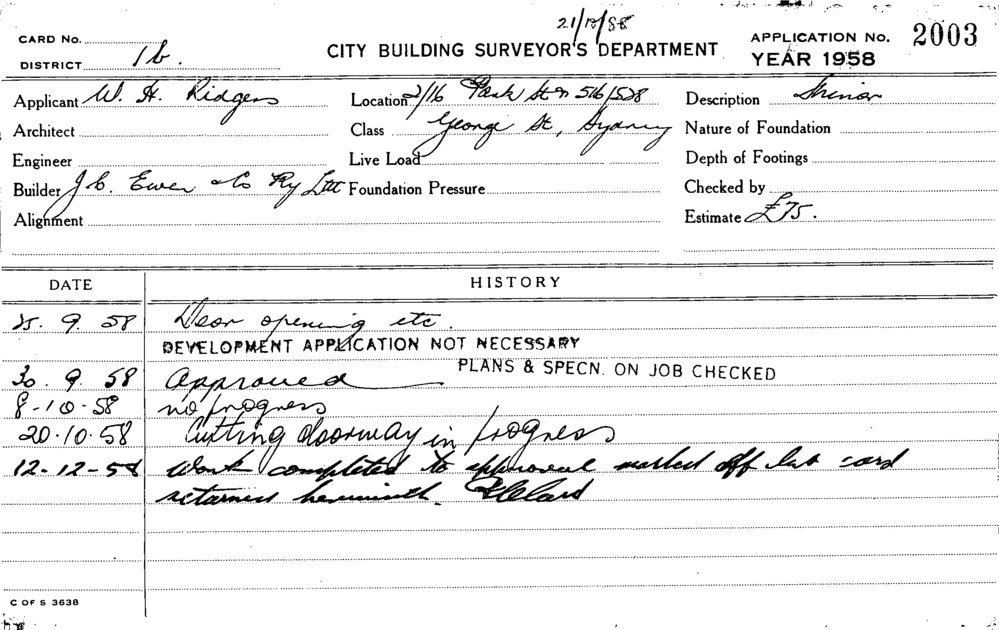 21/10/58
CARD No.
CITY BUILDING SURVEYOR'S DEPARTMENT
APPLICATION No. 2003
DISTRICT 1b.
YEAR 1958
Applicant W. H. Ridgers
Location 2/16 Park St & 516/528
Description Minor
Architect
Class George St, Sydney
Nature of Foundation
Engineer
Live Load
Depth of Footings
Builder J. C. Ewer & Co Pty Ltd
Foundation Pressure
Checked by
Alignment
Estimate £75.
DATE
HISTORY
25. 9. 58 Door opening etc.
DEVELOPMENT APPLICATION NOT NECESSARY
PLANS & SPECN. ON JOB CHECKED
30. 9. 58 Approved
8-10-58 no progress
20.10.58 Cutting doorway in progress
12-12-58 Work completed to approval marked off card
returned herewith.
C OF S 3638